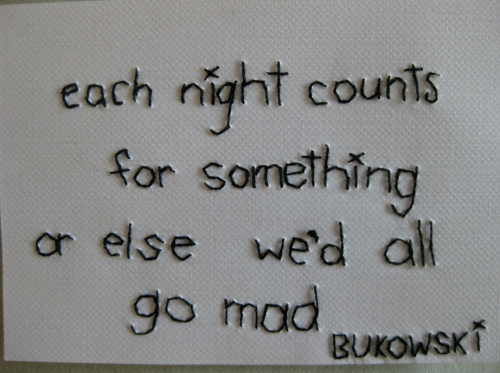 each night counts
for something
or else we'd all
go mad
BUKOWSKi